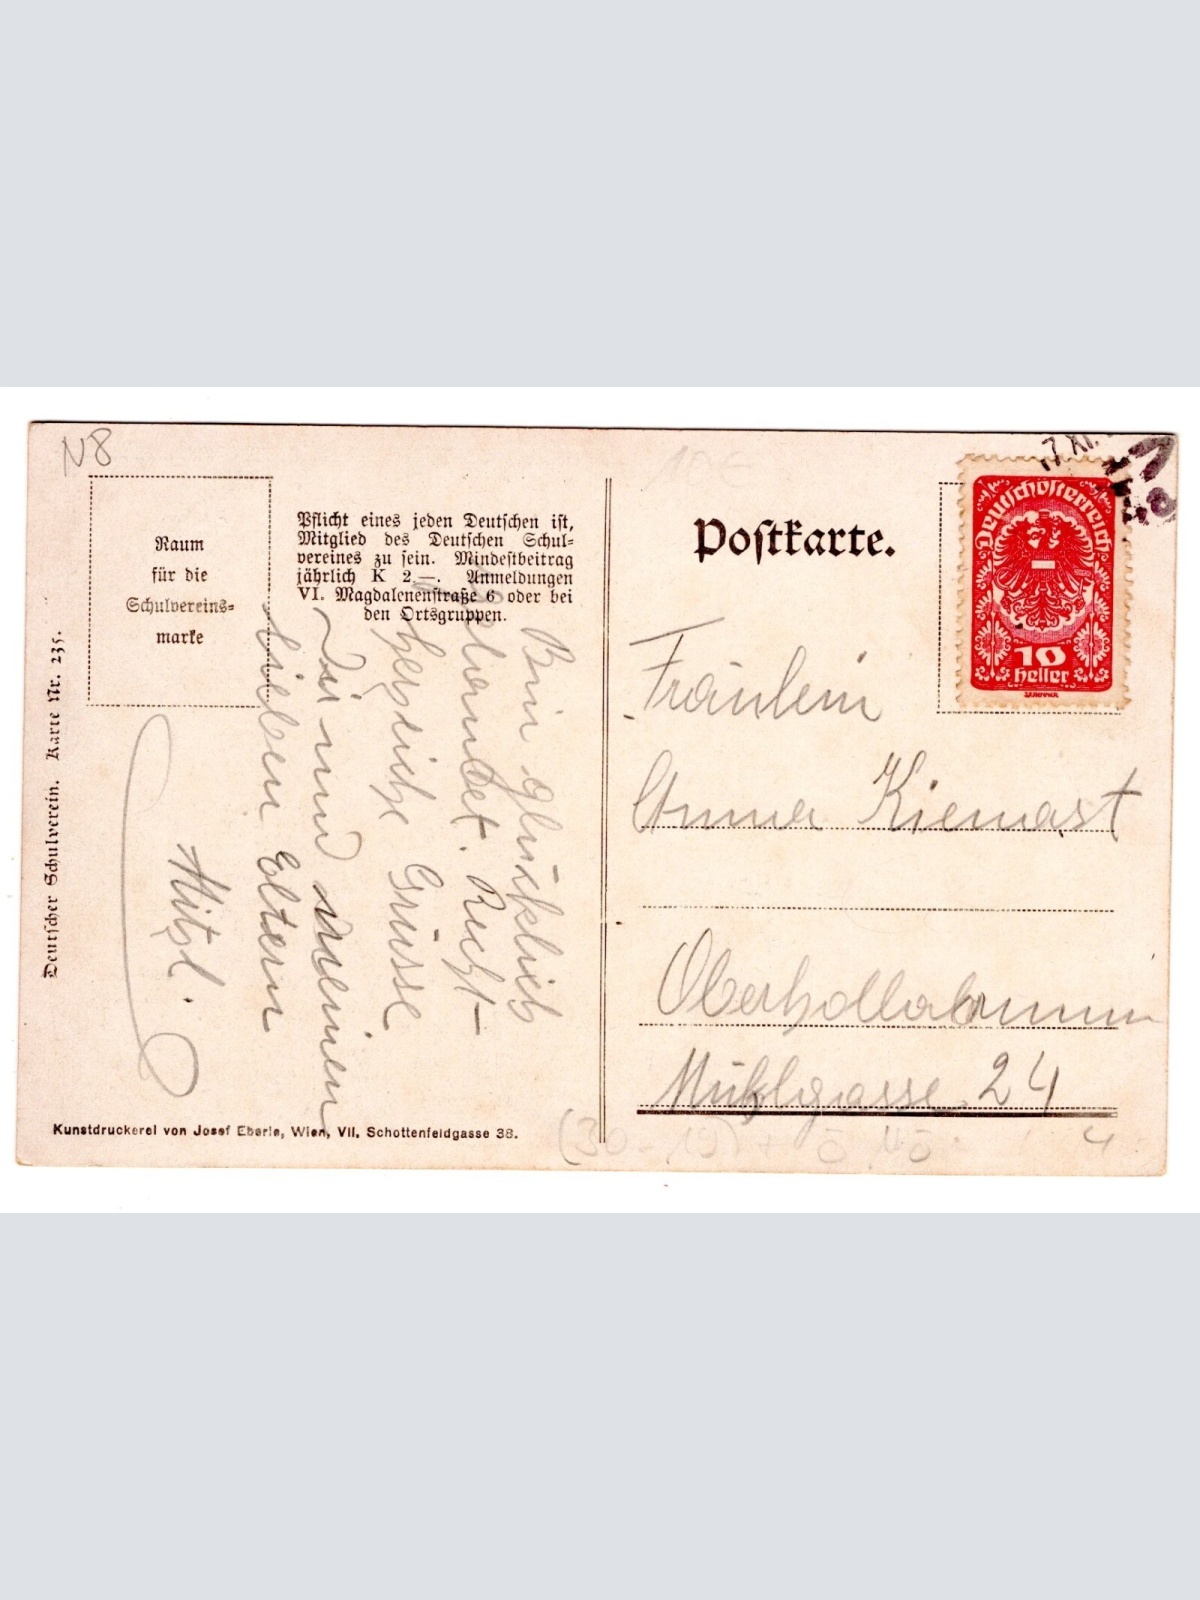 N8
Raum
für die
Schulvereins=
marke
Pflicht eines jeden Deutschen ist,
Mitglied des Deutschen Schul=
vereines zu sein. Mindestbeitrag
jährlich K 2.—. Anmeldungen
VI. Magdalenenstraße 6 oder bei
den Ortsgruppen.
Bin glücklich
gelandet. Recht
herzliche Grüsse
Dir und Deinen
lieben Eltern
Mitzl.
Deutscher Schulverein. Karte Nr. 235.
Kunstdruckerei von Josef Eberle, Wien, VII, Schottenfeldgasse 38.
Postkarte.
7 XI.
Deutschösterreich
10
Heller
Fräulein
Anna Kienast
Oberhollabrunn
Mühlgasse 24